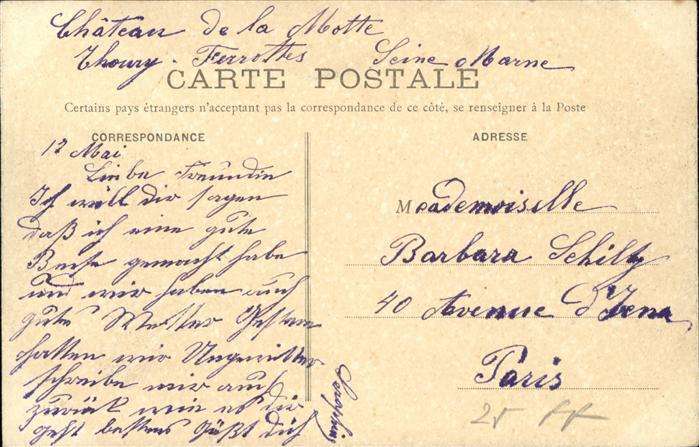 Château de la Motte
Thoury-Ferrottes Seine Marne
CARTE POSTALE
Certains pays étrangers n'acceptant pas la correspondance de ce côté, se renseigner à la Poste
CORRESPONDANCE
12 Mai
Liebe Freundin
Ich will dir sagen
daß ich eine gute
Reise gemacht habe
und wir haben auch
gute Wetter Gestern
hatten wir Ungewitter
schreibe mir auch
zurück wie es dir
geht bestens Grüßt dich
ADRESSE
Mademoiselle
Barbara Schiltz
40 Avenue d'Jena
Paris
25 ff